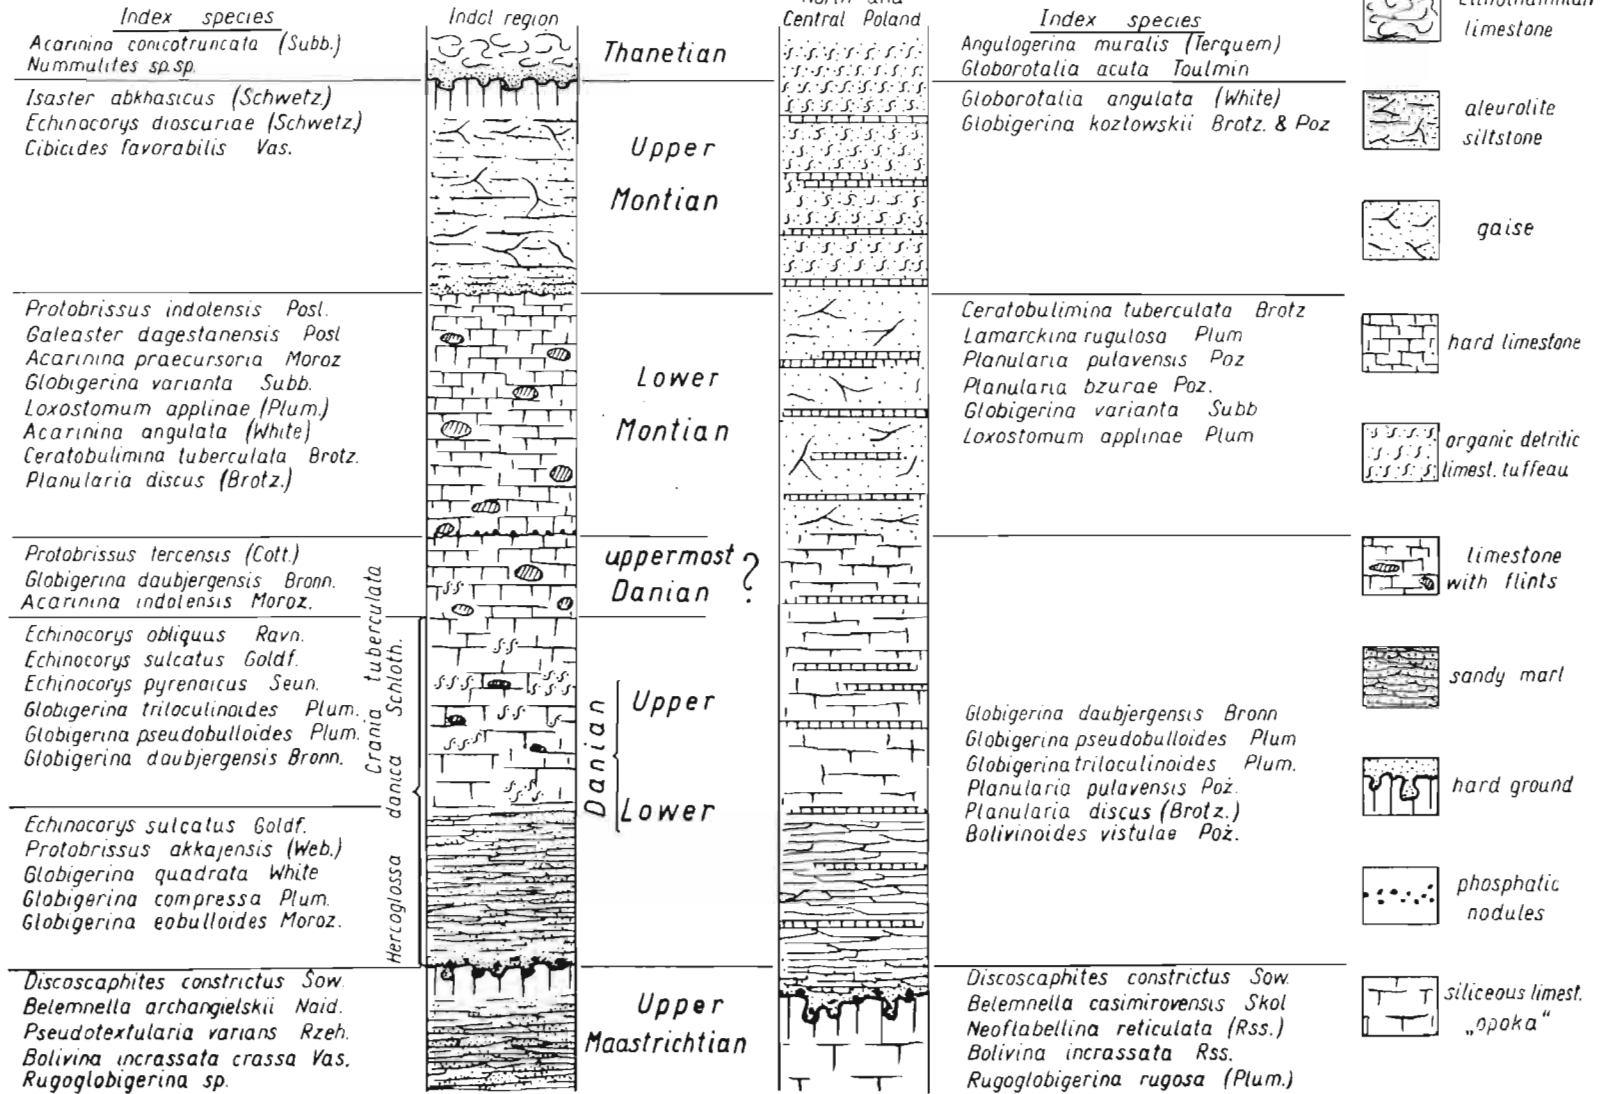 Index species
Acarinina conicotruncata (Subb.)
Nummulites sp.sp.
Isaster abkhasicus (Schwetz.)
Echinocorys dioscuriae (Schwetz.)
Cibicides favorabilis Vas.
Protobrissus indolensis Posl.
Galeaster dagestanensis Posl
Acarinina praecursoria Moroz
Globigerina varianta Subb.
Loxostomum applinae (Plum.)
Acarinina angulata (White)
Ceratobulimina tuberculata Brotz.
Planularia discus (Brotz.)
Protobrissus tercensis (Cott.)
Globigerina daubjergensis Bronn.
Acarinina indolensis Moroz.
Echinocorys obliquus Ravn.
Echinocorys sulcatus Goldf.
Echinocorys pyrenaicus Seun.
Globigerina triloculinoides Plum.
Globigerina pseudobulloides Plum.
Globigerina daubjergensis Bronn.
Echinocorys sulcatus Goldf.
Protobrissus akkajensis (Web.)
Globigerina quadrata White
Globigerina compressa Plum.
Globigerina eobulloides Moroz.
Discoscaphites constrictus Sow.
Belemnella archangielskii Naid.
Pseudotextularia varians Rzeh.
Bolivina incrassata crassa Vas.
Rugoglobigerina sp.
Crania tuberculata
Hercoglossa danica Schloth.
Indol region
Thanetian
Upper
Montian
Lower
Montian
uppermost
Danian ?
Danian
Upper
Lower
Upper
Maastrichtian
North and
Central Poland
Index species
Angulogerina muralis (Terquem)
Globorotalia acuta Toulmin
Globorotalia angulata (White)
Globigerina kozłowskii Brotz. & Poz
Ceratobulimina tuberculata Brotz
Lamarckina rugulosa Plum
Planularia pulavensis Poz
Planularia bzurae Poz.
Globigerina varianta Subb
Loxostomum applinae Plum
Globigerina daubjergensis Bronn
Globigerina pseudobulloides Plum
Globigerina triloculinoides Plum.
Planularia pulavensis Poż.
Planularia discus (Brotz.)
Bolivinoides vistulae Poż.
Discoscaphites constrictus Sow.
Belemnella casimirovensis Skol
Neoflabellina reticulata (Rss.)
Bolivina incrassata Rss.
Rugoglobigerina rugosa (Plum.)
limestone
aleurolite
siltstone
gaise
hard limestone
organic detritic
limest. tuffeau
limestone
with flints
sandy marl
hard ground
phosphatic
nodules
siliceous limest.
„opoka“